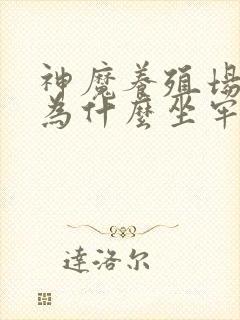 神魔養殖場
為什麼坐牢
達洛尔